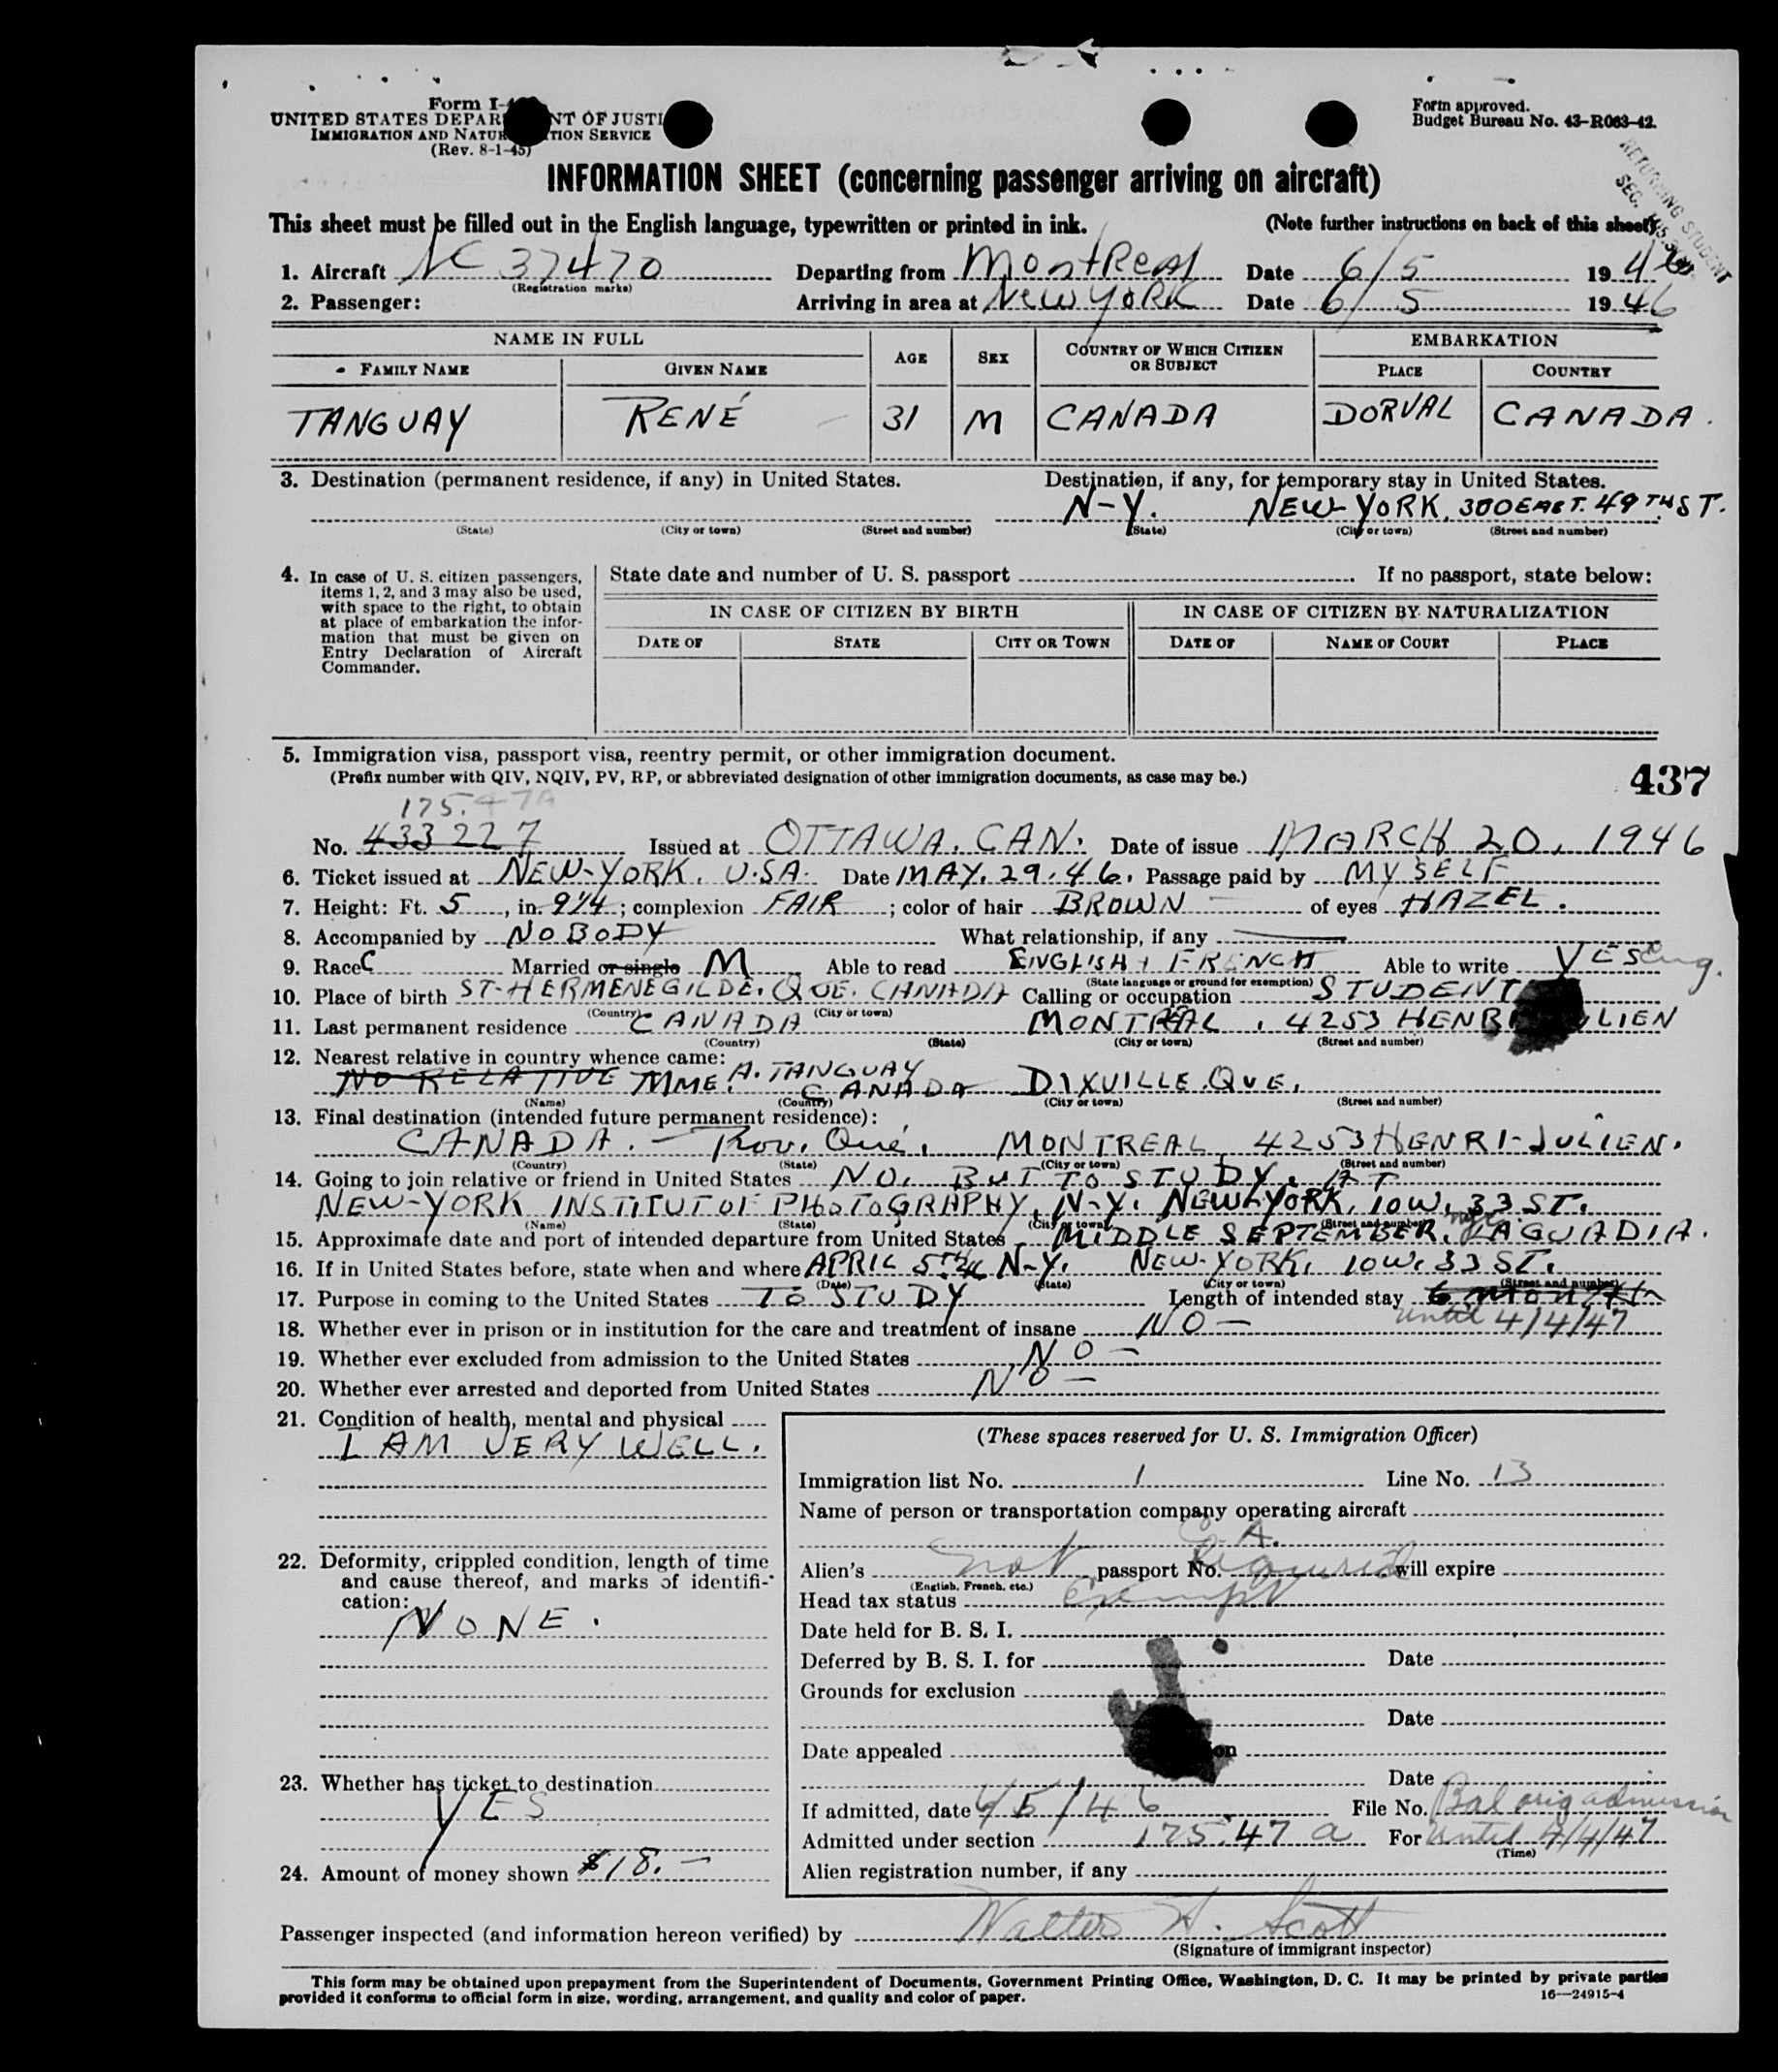 Form I-
UNITED STATES DEPAR NT OF JUSTI
IMMIGRATION AND NATUR TION SERVICE
(Rev. 8-1-45)
Form approved.
Budget Bureau No. 43-R063-42.
RETURNING STUDENT
SEC.
INFORMATION SHEET (concerning passenger arriving on aircraft)
This sheet must be filled out in the English language, typewritten or printed in ink. (Note further instructions on back of this sheet)
1. Aircraft NC 37470 Departing from Montreal Date 6/5 1946
(Registration marks)
2. Passenger: Arriving in area at New York Date 6/5 1946
NAME IN FULL AGE SEX COUNTRY OF WHICH CITIZEN OR SUBJECT EMBARKATION
FAMILY NAME GIVEN NAME PLACE COUNTRY
TANGUAY RENÉ 31 M CANADA DORVAL CANADA.
3. Destination (permanent residence, if any) in United States. Destination, if any, for temporary stay in United States.
N-Y. NEW-YORK, 300 EAST. 49TH ST.
(State) (City or town) (Street and number) (State) (City or town) (Street and number)
4. In case of U. S. citizen passengers, items 1, 2, and 3 may also be used, with space to the right, to obtain at place of embarkation the information that must be given on Entry Declaration of Aircraft Commander.
State date and number of U. S. passport . If no passport, state below:
IN CASE OF CITIZEN BY BIRTH IN CASE OF CITIZEN BY NATURALIZATION
DATE OF STATE CITY OR TOWN DATE OF NAME OF COURT PLACE
5. Immigration visa, passport visa, reentry permit, or other immigration document.
(Prefix number with QIV, NQIV, PV, RP, or abbreviated designation of other immigration documents, as case may be.)
437
175.47A
No. 433227 Issued at OTTAWA. CAN. Date of issue MARCH 20, 1946
6. Ticket issued at NEW-YORK. U.S.A. Date MAY. 29. 46. Passage paid by MYSELF
7. Height: Ft. 5, in. 9 1/4; complexion FAIR; color of hair BROWN of eyes HAZEL.
8. Accompanied by NOBODY What relationship, if any
9. Race C Married or single M Able to read ENGLISH & FRENCH Able to write YES Eng.
(State language or ground for exemption)
10. Place of birth ST-HERMENEGILDE. QUE. CANADA Calling or occupation STUDENT
(Country) (City or town)
11. Last permanent residence CANADA MONTREAL, 4253 HENR LIEN
(Country) (State) (City or town) (Street and number)
12. Nearest relative in country whence came:
NO RELATIVE MME. A. TANGUAY CANADA DIXVILLE. QUE.
(Name) (Country) (City or town) (Street and number)
13. Final destination (intended future permanent residence):
CANADA. - Prov. Qué. MONTREAL, 4253 HENRI-JULIEN.
(Country) (State) (City or town) (Street and number)
14. Going to join relative or friend in United States NO, BUT TO STUDY, AT
NEW-YORK INSTITUT OF PHOTOGRAPHY, N-Y. NEW-YORK, 10 W. 33 ST.
(Name) (State) (City or town) (Street and number)
15. Approximate date and port of intended departure from United States MIDDLE SEPTEMBER, LAGUADIA.
16. If in United States before, state when and where APRIL 5TH 46 N-Y. NEW-YORK, 10 W. 33 ST.
(Date) (State) (City or town) (Street and number)
17. Purpose in coming to the United States TO STUDY Length of intended stay 6 month
until 4/4/47
18. Whether ever in prison or in institution for the care and treatment of insane NO -
19. Whether ever excluded from admission to the United States NO -
20. Whether ever arrested and deported from United States NO -
21. Condition of health, mental and physical
I AM VERY WELL.
22. Deformity, crippled condition, length of time and cause thereof, and marks of identification:
NONE.
23. Whether has ticket to destination
YES
24. Amount of money shown $18. -
(These spaces reserved for U. S. Immigration Officer)
Immigration list No. 1 Line No. 13
Name of person or transportation company operating aircraft
C. A.
Alien's not passport No. required will expire
(English, French, etc.)
Head tax status Exempt
Date held for B. S. I.
Deferred by B. S. I. for Date
Grounds for exclusion
Date
Date appealed on
Date
If admitted, date 6/5/46 File No. Bal orig admission
Admitted under section 175.47 a For until 4/4/47
(Time)
Alien registration number, if any
Passenger inspected (and information hereon verified) by Walter H. Scott
(Signature of immigrant inspector)
This form may be obtained upon prepayment from the Superintendent of Documents, Government Printing Office, Washington, D. C. It may be printed by private parties
provided it conforms to official form in size, wording, arrangement, and quality and color of paper.
16—24915-4